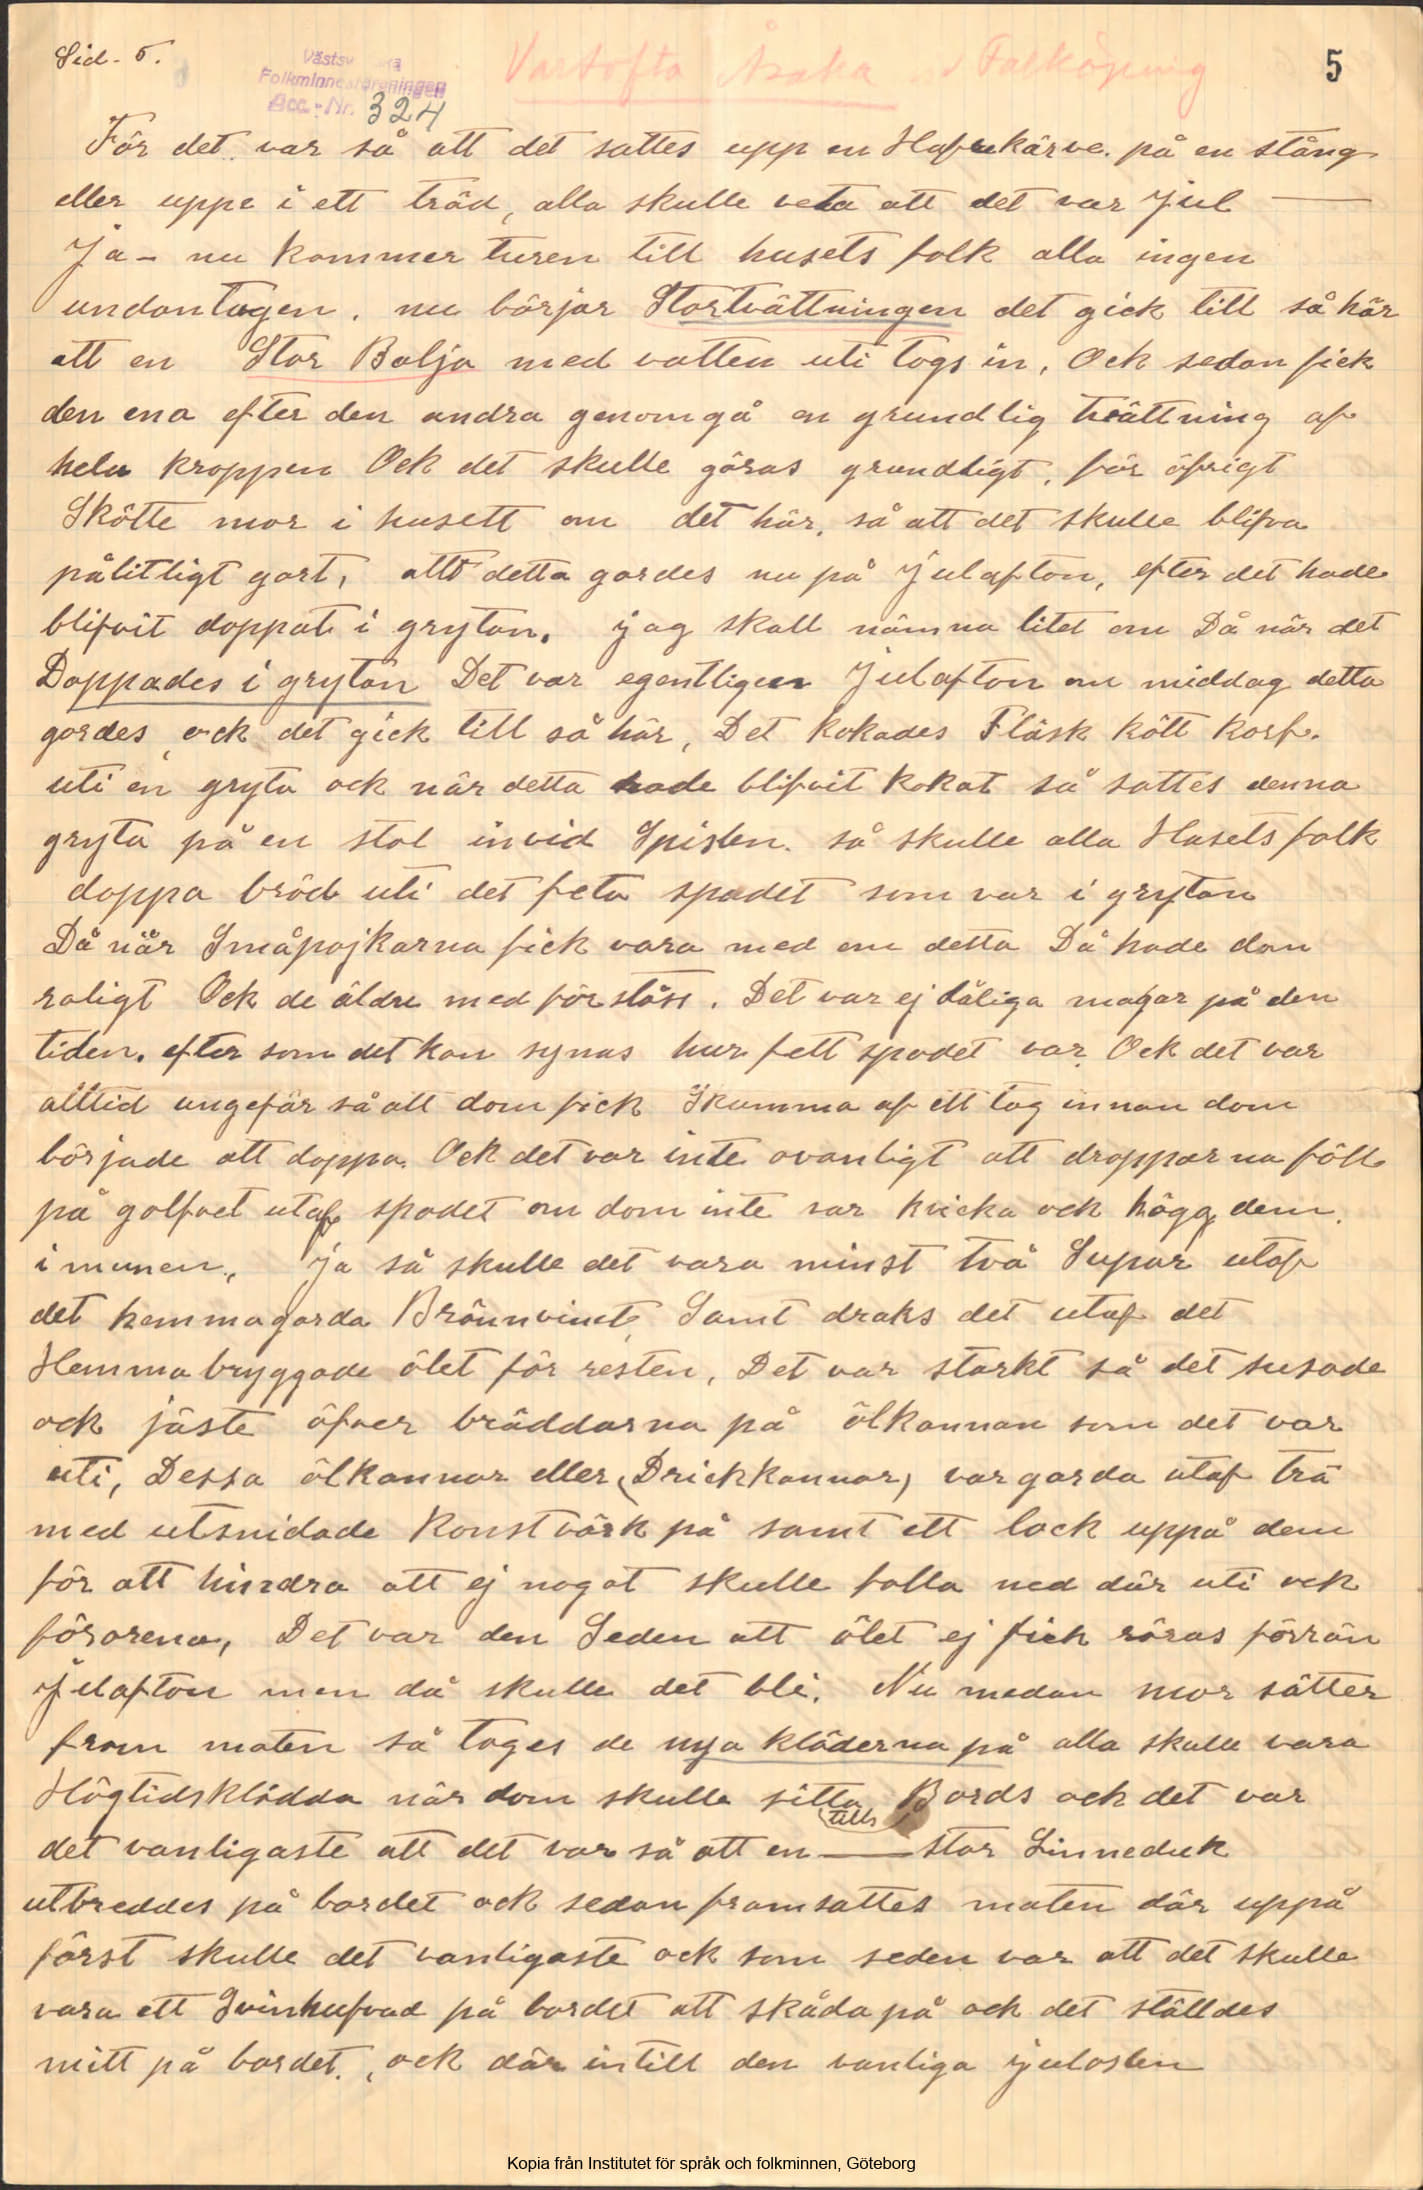 Sid. 5.
Västsvenska
Folkminnesföreningen
Acc.-Nr. 324
Vartofta Åsaka Falköping
5
För det var så att det sattes upp en Hafrekärve. på en stång
eller uppe i ett träd, alla skulle veta att det var Jul —
Ja - nu kommer turen till husets folk alla ingen
undantagen. nu börjar Stortvättningen det gick till så här
att en Stor Balja med vatten uti togs in, Ock sedan fick
den ena efter den andra genomgå en grundlig tvättning af
hela kroppen Ock det skulle göras grundligt, för öfrigt
Skötte mor i husett om det här, så att det skulle blifva
pålitligt gort, allt detta gordes nu på Julafton, efter det hade
blifvit doppat i grytan. jag skall nämna litet om Då när det
Doppades i grytan Det var egentligen Julafton om middag detta
gordes, ock det gick till så här, Det kokades Fläsk kött korf.
uti en gryta ock när detta hade blifvit kokat så sattes denna
gryta på en stol invid Spislen. så skulle alla Husets folk
doppa bröd uti det feta spadet som var i grytan
Då när Småpojkarna fick vara med om detta Då hade dom
roligt Ock de äldre med förståss. Det var ej dåliga magar på den
tiden. efter som det kan synas hur fett spadet var. Ock det var
alltid ungefär så att dom fick Skumma af ett tag innan dom
började att doppa. Ock det var inte ovanligt att dropparna föll
på golfvet utaf spadet om dom inte var kvicka ock högg dem.
i munen, Ja så skulle det vara minst två Supar utaf
det hemmagorda Brännvinet, Samt draks det utaf det
Hemmabryggade ölet för resten, Det var starkt så det susade
ock jäste öfver bräddarna på ölkannan som det var
uti, Dessa ölkannor eller (Drickkannor) var gorda utaf trä
med utsnidade konstvärk på samt ett lock uppå dem
för att hindra att ej nogot skulle falla ned där uti ock
förorena, Det var den Seden att ölet ej fick röras förrän
Julafton men då skulle det bli. Nu medan mor sätter
fram maten så toges de nya kläderna på alla skulle vara
Högtidsklädda när dom skulle sitta Bords ock det var
tills
det vanligaste att det var så att en — stor Linneduk
utbreddes på bordet ock sedan framsattes maten där uppå
först skulle det vanligaste ock som seden var att det skulle
vara ett Svinhufvud på bordet att skåda på ock det ställdes
mitt på bordet, ock där intill den vanliga julosten
Kopia från Institutet för språk och folkminnen, Göteborg